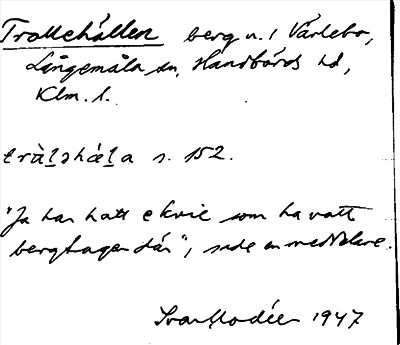 Trollehällen berg n. i Värlebo,
Långemåla sn, Handbörds hd,
Klm. l.
tràl̲əhæl̲a s. 152.
"Ja har hatt e kvie som ha vatt
bergtagen där", sade en meddelare.
Ivar Modéer 1947